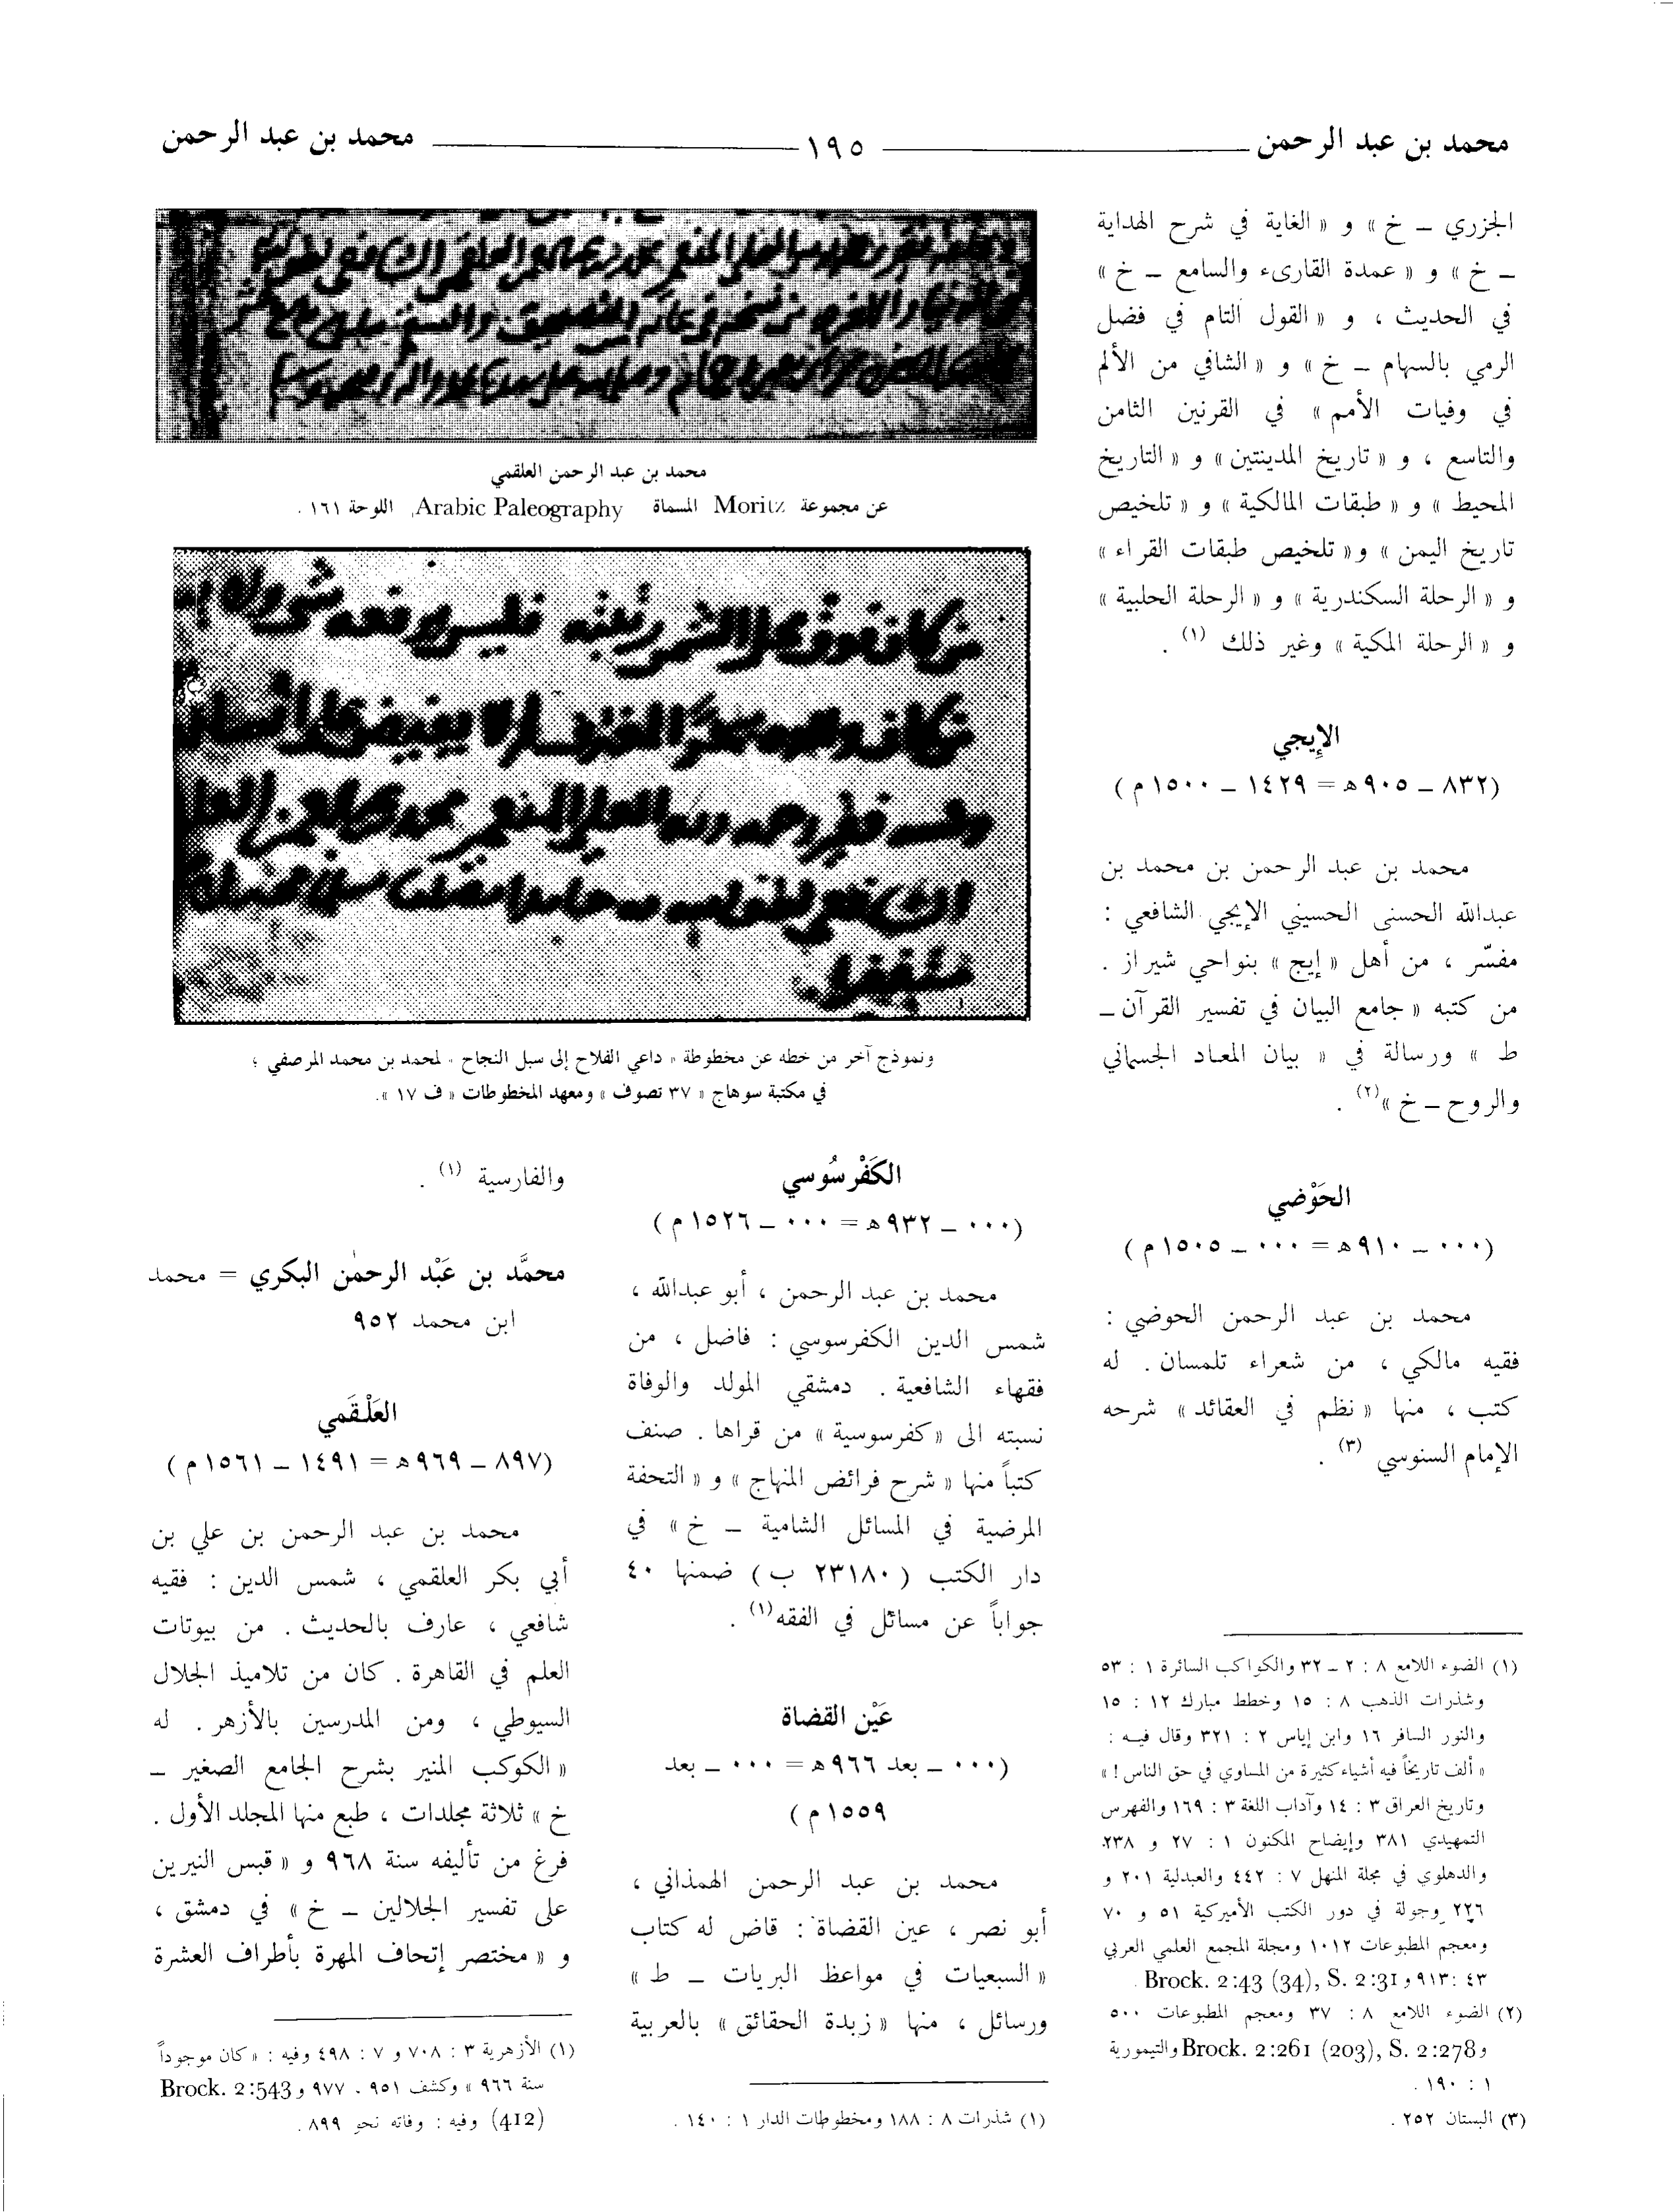 محمد بن عبد الرحمن ١٩٥ محمد بن عبد الرحمن
الجزري ــ خ » و « الغاية في شرح الهداية
ــ خ » و « عمدة القارىء والسامع ــ خ »
في الحديث ، و « القول التام في فضل
الرمي بالسهام ــ خ » و « الشافي من الألم
في وفيات الأمم » في القرنين الثامن
والتاسع ، و « تاريخ المدينتين » و « التاريخ
المحيط » و « طبقات المالكية » و « تلخيص
تاريخ اليمن » و « تلخيص طبقات القراء »
و « الرحلة السكندرية » و « الرحلة الحلبية »
و « الرحلة المكية » وغير ذلك (١) .
الإيجي
(٨٣٢ ــ ٩٠٥ هـ = ١٤٢٩ ــ ١٥٠٠ م)
محمد بن عبد الرحمن بن محمد بن
عبدالله الحسنى الحسيني الإيجي الشافعي :
مفسّر ، من أهل « إيج » بنواحي شيراز .
من كتبه « جامع البيان في تفسير القرآن ــ
ط » ورسالة في « بيان المعاد الجسماني
والروح ــ خ »(٢) .
الحَوْضي
(٠٠٠ ــ ٩١٠ هـ = ٠٠٠ ــ ١٥٠٥ م)
محمد بن عبد الرحمن الحوضي :
فقيه مالكي ، من شعراء تلمسان . له
كتب ، منها « نظم في العقائد » شرحه
الإمام السنوسي (٣) .
(١) الضوء اللامع ٨ : ٢ ــ ٣٢ والكواكب السائرة ١ : ٥٣
وشذرات الذهب ٨ : ١٥ وخطط مبارك ١٢ : ١٥
والنور السافر ١٦ وابن إياس ٢ : ٣٢١ وقال فيه :
« ألف تاريخاً فيه أشياء كثيرة من المساوي في حق الناس ! »
وتاريخ العراق ٣ : ١٤ وآداب اللغة ٣ : ١٦٩ والفهرس
التمهيدي ٣٨١ وإيضاح المكنون ١ : ٢٧ و ٢٣٨
والدهلوي في مجلة المنهل ٧ : ٤٤٢ والعبدلية ٢٠١ و
٢٢٦ وجولة في دور الكتب الأميركية ٥١ و ٧٠
ومعجم المطبوعات ١٠١٢ ومجلة المجمع العلمي العربي
٤٣ : ٩١٣ و Brock. 2:43 (34), S. 2:31
(٢) الضوء اللامع ٨ : ٣٧ ومعجم المطبوعات ٥٠٠
و Brock. 2:261 (203), S. 2:278 والتيمورية
١ : ١٩٠ .
(٣) البستان ٢٥٢ .
محمد بن عبد الرحمن العلقمي
عن مجموعة Moritz المسماة Arabic Paleography, اللوحة ١٦١ .
ونموذج آخر من خطه عن مخطوطة « داعي الفلاح إلى سبل النجاح » لمحمد بن محمد المرصفي ؛
في مكتبة سوهاج « ٣٧ تصوف » ومعهد المخطوطات « ف ١٧ ».
الكَفْرسُوسي
(٠٠٠ ــ ٩٣٢ هـ = ٠٠٠ ــ ١٥٢٦ م)
محمد بن عبد الرحمن ، أبو عبدالله ،
شمس الدين الكفرسوسي : فاضل ، من
فقهاء الشافعية . دمشقي المولد والوفاة
نسبته الى « كفرسوسية » من قراها . صنف
كتباً منها « شرح فرائض المنهاج » و « التحفة
المرضية في المسائل الشامية ــ خ » في
دار الكتب ( ٢٣١٨٠ ب ) ضمنها ٤٠
جواباً عن مسائل في الفقه(١) .
عَيْن القضاة
(٠٠٠ ــ بعد ٩٦٦ هـ = ٠٠٠ ــ بعد
١٥٥٩ م)
محمد بن عبد الرحمن الهمذاني ،
أبو نصر ، عين القضاة : قاض له كتاب
« السبعيات في مواعظ البريات ــ ط »
ورسائل ، منها « زبدة الحقائق » بالعربية
(١) شذرات ٨ : ١٨٨ ومخطوطات الدار ١ : ١٤٠ .
والفارسية (١) .
محمَّد بن عَبْد الرحمٰن البكري = محمد
ابن محمد ٩٥٢
العَلْقَمي
(٨٩٧ ــ ٩٦٩ هـ = ١٤٩١ ــ ١٥٦١ م)
محمد بن عبد الرحمن بن علي بن
أبي بكر العلقمي ، شمس الدين : فقيه
شافعي ، عارف بالحديث . من بيوتات
العلم في القاهرة . كان من تلاميذ الجلال
السيوطي ، ومن المدرسين بالأزهر . له
« الكوكب المنير بشرح الجامع الصغير ــ
خ » ثلاثة مجلدات ، طبع منها المجلد الأول .
فرغ من تأليفه سنة ٩٦٨ و « قبس النيرين
على تفسير الجلالين ــ خ » في دمشق ،
و « مختصر إتحاف المهرة بأطراف العشرة
(١) الأزهرية ٣ : ٧٠٨ و ٧ : ٤٩٨ وفيه : « كان موجوداً
سنة ٩٦٦ » وكشف ٩٥١ ، ٩٧٧ و Brock. 2:543
(412) وفيه : وفاته نحو ٨٩٩ .